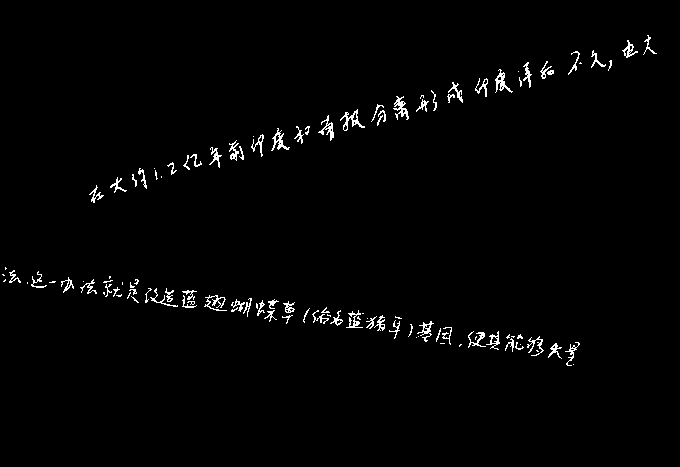 在大约1.2亿年前印度和南极分离形成印度洋后不久,也大
法.这一办法就是改造蓝翅蝴蝶草(俗名蓝猪耳)基因,使其能够大量